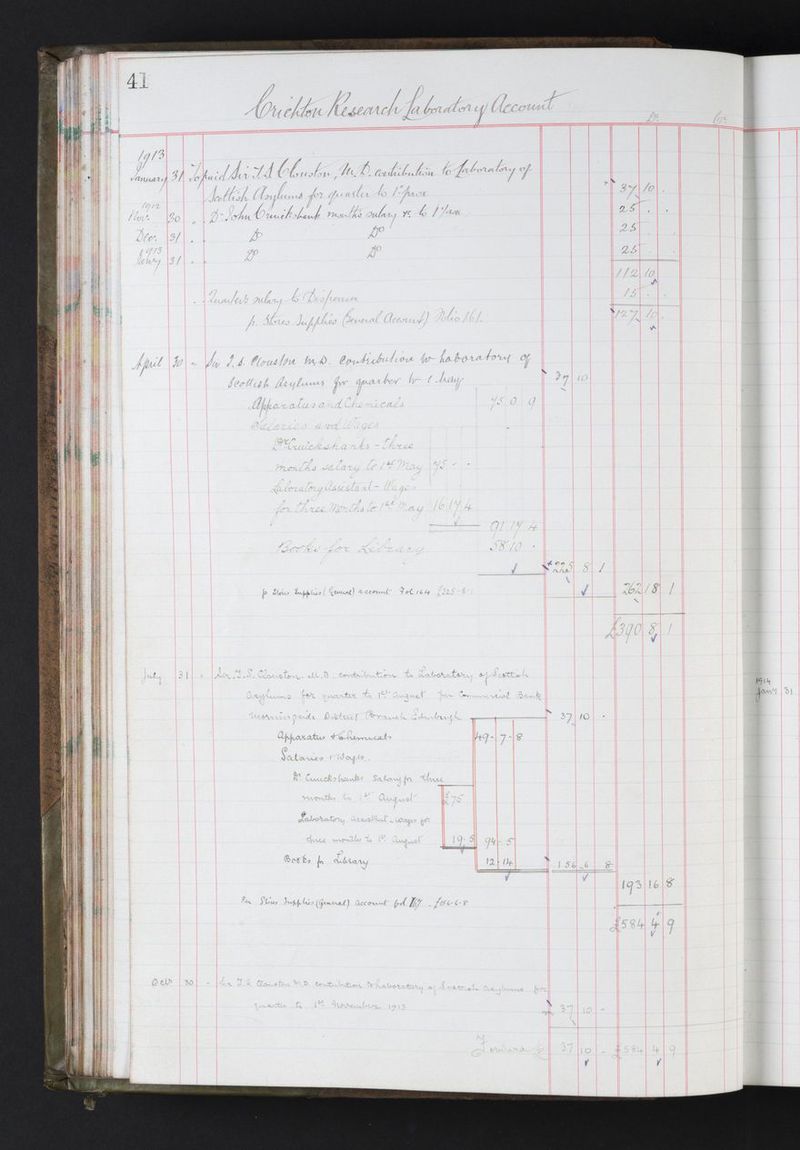 41
Crichton Research Laboratory Account
Dr Cr
1913
January 31 To paid Sir T.S. Clouston, M.D. contribution to Laboratory of
Scottish Asylums for quarter to 1st prox 37 10
1912
Nov. 30 Dr John Cruickshank month's salary to 1st 25
Dec. 31 Do Do 25
1913
31 Do Do 25
112 10
Quarter's salary to Dispenser 15
p. Stores Supplies (General Account) Folio 161. 127 10
April 30 Sir T.S. Clouston M.D. Contribution to Laboratory of
Scottish Asylums for quarter to 1 May 37 10
Apparatus and Chemicals 75 0 9
Salaries and Wages
Dr Cruickshanks - three
months salary to 1st May 75 - -
Laboratory Assistant - Wages
for three Months to 1st May 16 17 4
91 17 4
Books for Library 58 10 -
225 8 1
p Stores Supplies (General) account Fol 164 £225-8-1 262 18 1
£390 8 1
July 31 Sir T.S. Clouston M.D. contribution to Laboratory of Scottish
Asylums for quarter to 1st August per Commercial Bank
Morningside District Branch Edinburgh 37 10 -
Apparatus & Chemicals 49 - 7 - 8
Salaries & Wages.
Dr Cruickshanks Salary for three
months to 1st August £75
Laboratory Assistant - wages for
three months to 1st August 19. 5 94 - 5
Books for Library 12 - 14 156 . 6 8
193 16 8
Per Stores Supplies (General) account fol 167 - £156-6-8
£584 4 9
Octr 30 - Sir T.S. Clouston M.D. contribution to Laboratory of Scottish Asylums for
quarter to 1st November 1913 37 10 -
Forward £ 37 10 - £584 4 9
1914
Jany 31